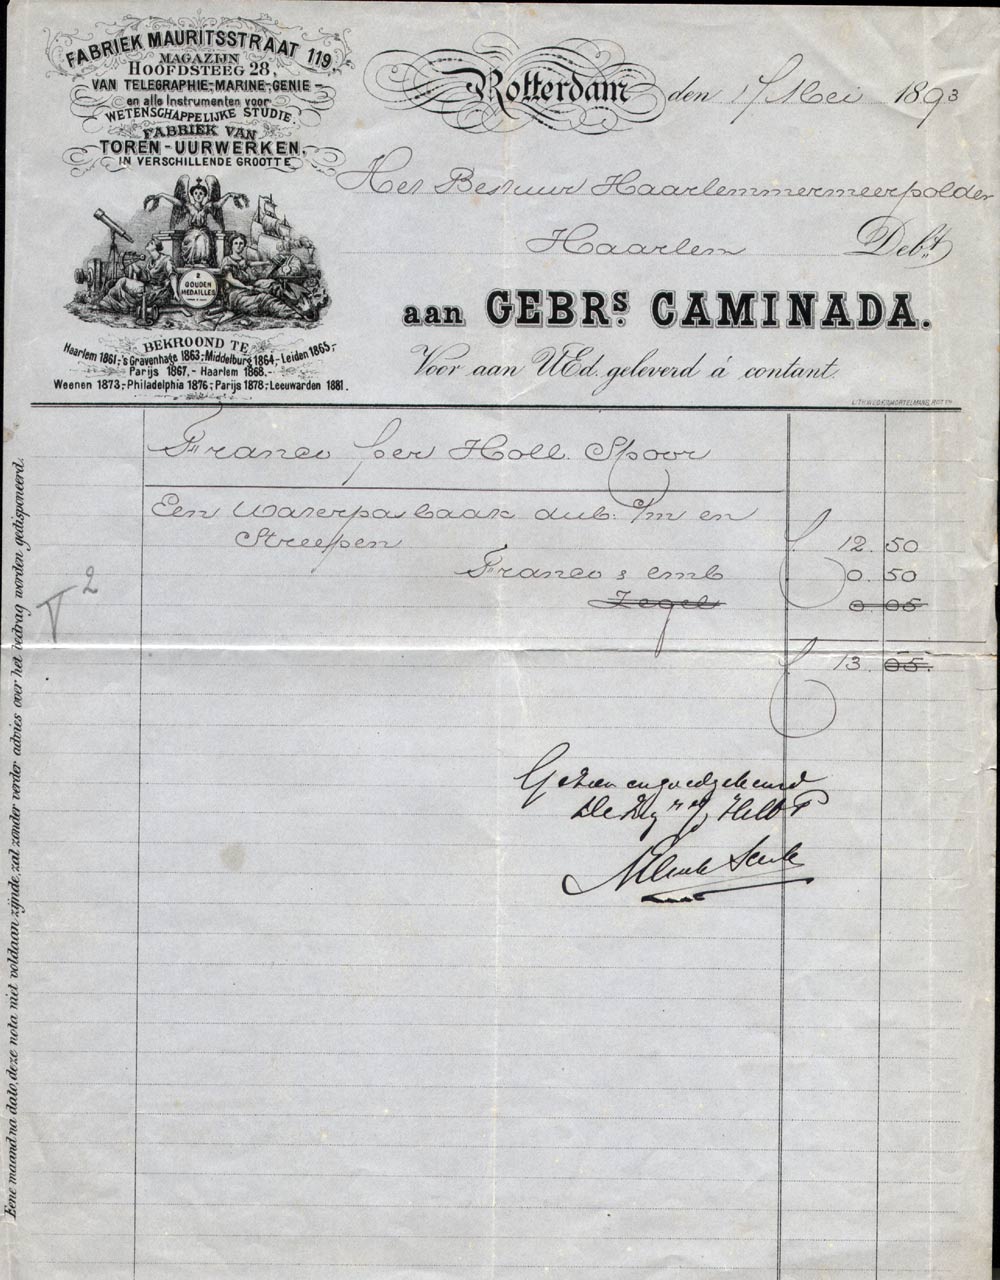 FABRIEK MAURITSSTRAAT 119,
MAGAZIJN
HOOFDSTEEG 28,
VAN TELEGRAPHIE-MARINE-GENIE-
en alle Instrumenten voor
WETENSCHAPPELIJKE STUDIE.
FABRIEK VAN
TOREN-UURWERKEN,
IN VERSCHILLENDE GROOTTE
2
GOUDEN
MEDAILLES
BEKROOND TE
Haarlem 1861,-'s Gravenhage 1863,-Middelburg 1864,-Leiden 1865,-
Parijs 1867,- Haarlem 1868,-
Weenen 1873,-Philadelphia 1876,-Parijs 1878,-Leeuwarden 1881.
Rotterdam den 17 Mei 1893
Het Bestuur Haarlemmermeerpolder
Haarlem Debt.
aan GEBRS. CAMINADA.
Voor aan UEd. geleverd á contant.
Franco per Holl. Spoor
Een Waterpasbaak dub. c/m en
Streepen f 12.50
Franco & emb 0.50
Zegel 0.05
f 13.05.
Gezien en goedgekeurd
V 2
Eene maand na dato, deze nota niet voldaan zijnde, zal zonder verder advies over het bedrag worden gedisponeerd.